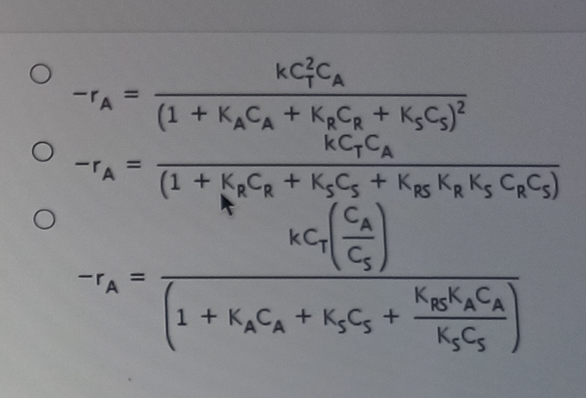 -r_A = kC_T^2C_A / (1 + K_AC_A + K_RC_R + K_SC_S)^2
-r_A = kC_TC_A / (1 + K_RC_R + K_SC_S + K_RS K_R K_S C_RC_S)
-r_A = kC_T(C_A / C_S) / (1 + K_AC_A + K_SC_S + K_RSK_AC_A / K_SC_S)